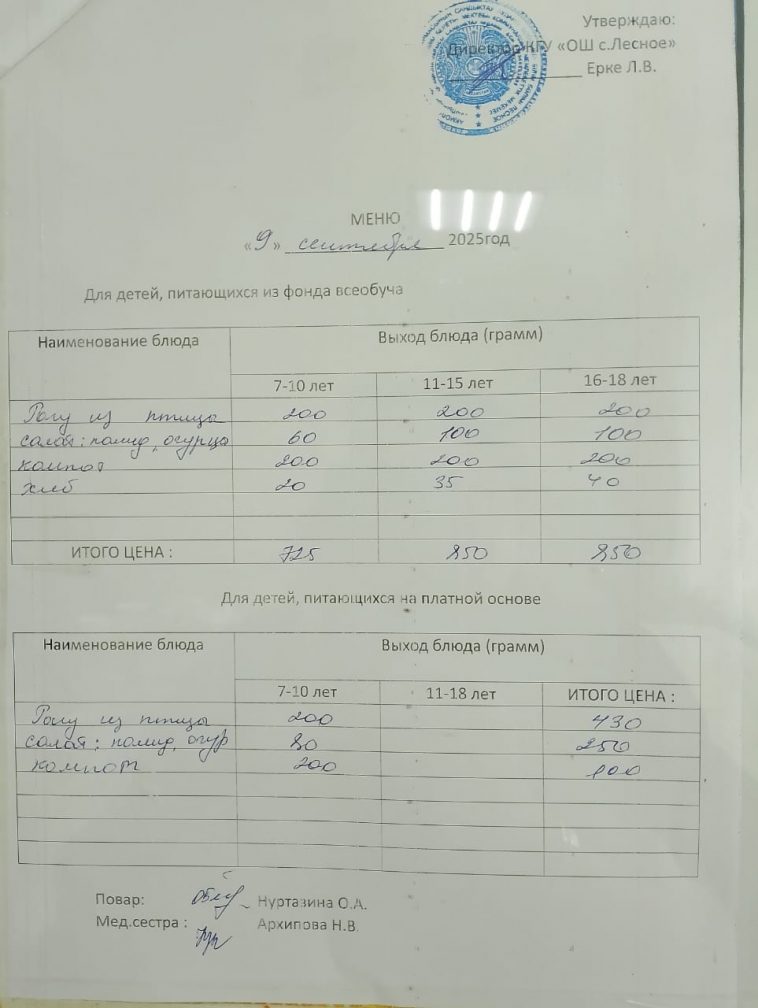 Утверждаю:
Директор КГУ «ОШ с.Лесное»
Ерке Л.В.
МЕНЮ
«9» сентября 2025год
Для детей, питающихся из фонда всеобуча
Наименование блюда Выход блюда (грамм)
7-10 лет 11-15 лет 16-18 лет
Рагу из птицы 200 200 200
салат: помид, огурцы 60 100 100
компот 200 200 200
хлеб 20 35 40
ИТОГО ЦЕНА : 725 850 850
Для детей, питающихся на платной основе
Наименование блюда Выход блюда (грамм)
7-10 лет 11-18 лет ИТОГО ЦЕНА :
Рагу из птицы 200 430
салат: помид, огур 80 250
компот 200 100
Повар: Нуртазина О.А.
Мед.сестра : Архипова Н.В.